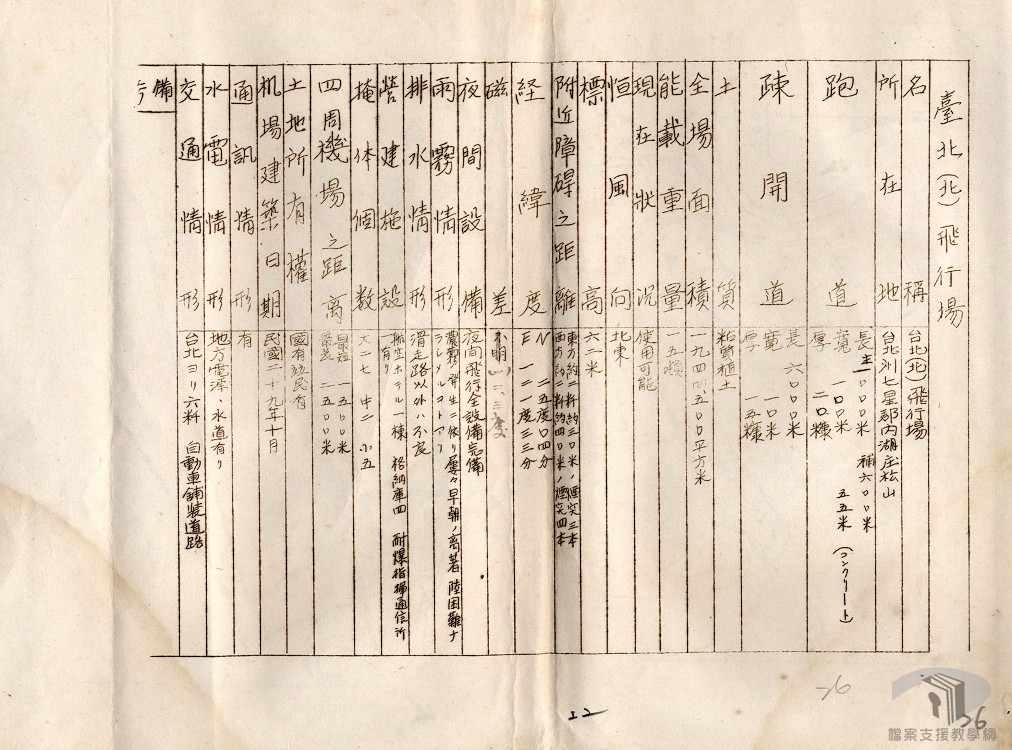 臺北(北)飛行場
名稱 台北(北)飛行場
所在地 台北州七星郡內湖庄松山
跑道 長 主一〇〇〇米 補六〇〇米
寬 一〇〇米 五五米
厚 二〇糎 (コンクリート)
疎開道 長 六〇〇〇米
寬 一〇〇米
厚 一五糎
土質 粘質植土
全場面積 一九四四、五〇〇平方米
能載重量 一五噸
現在狀況 使用可能
恒風向 北東
標高 六二米
附近障碍之距離 東方約二粁約三〇米ノ煙突三本
西方約二粁約四〇米ノ煙突四本
経緯度 N 二五度〇四分
E 一二一度三三分
磁差 不明
夜間設備 夜間飛行全設備完備
雨霧情形 濃霧發生ニ依リ屢々早朝ノ離著陸困難ナ
ラシメルコトアリ
排水情形 滑走路以外ハ不良
營建施設 航空ホテル一棟 格納庫四 耐爆指揮通信所
一有リ
掩体個数 大二七 中二 小五
四周機場之距离 最短 一五〇〇米
最長 二五〇〇米
土地所有權 國有并民有
机場建築日期 民國二十九年十月
通訊情形 有
水電情形 地方電源、水道有リ
交通情形 台北ヨリ六粁 自動車舖裝道路
備考
22
26
26
檔案支援教學網